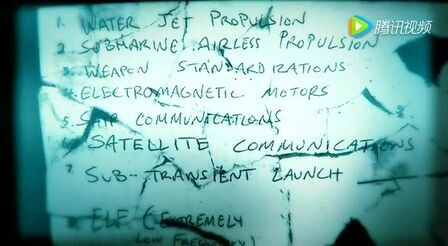 腾讯视频
1. WATER JET PROPULSION
2. SUBMARINE AIRLESS PROPULSION
3. WEAPON STANDARDIZATIONS
4. ELECTROMAGNETIC MOTORS
5. SHIP COMMUNICATIONS
6. SATELLITE COMMUNICATIONS
7. SUB-TRANSIENT LAUNCH
ELF (EXTREMELY
LOW FREQUENCY)